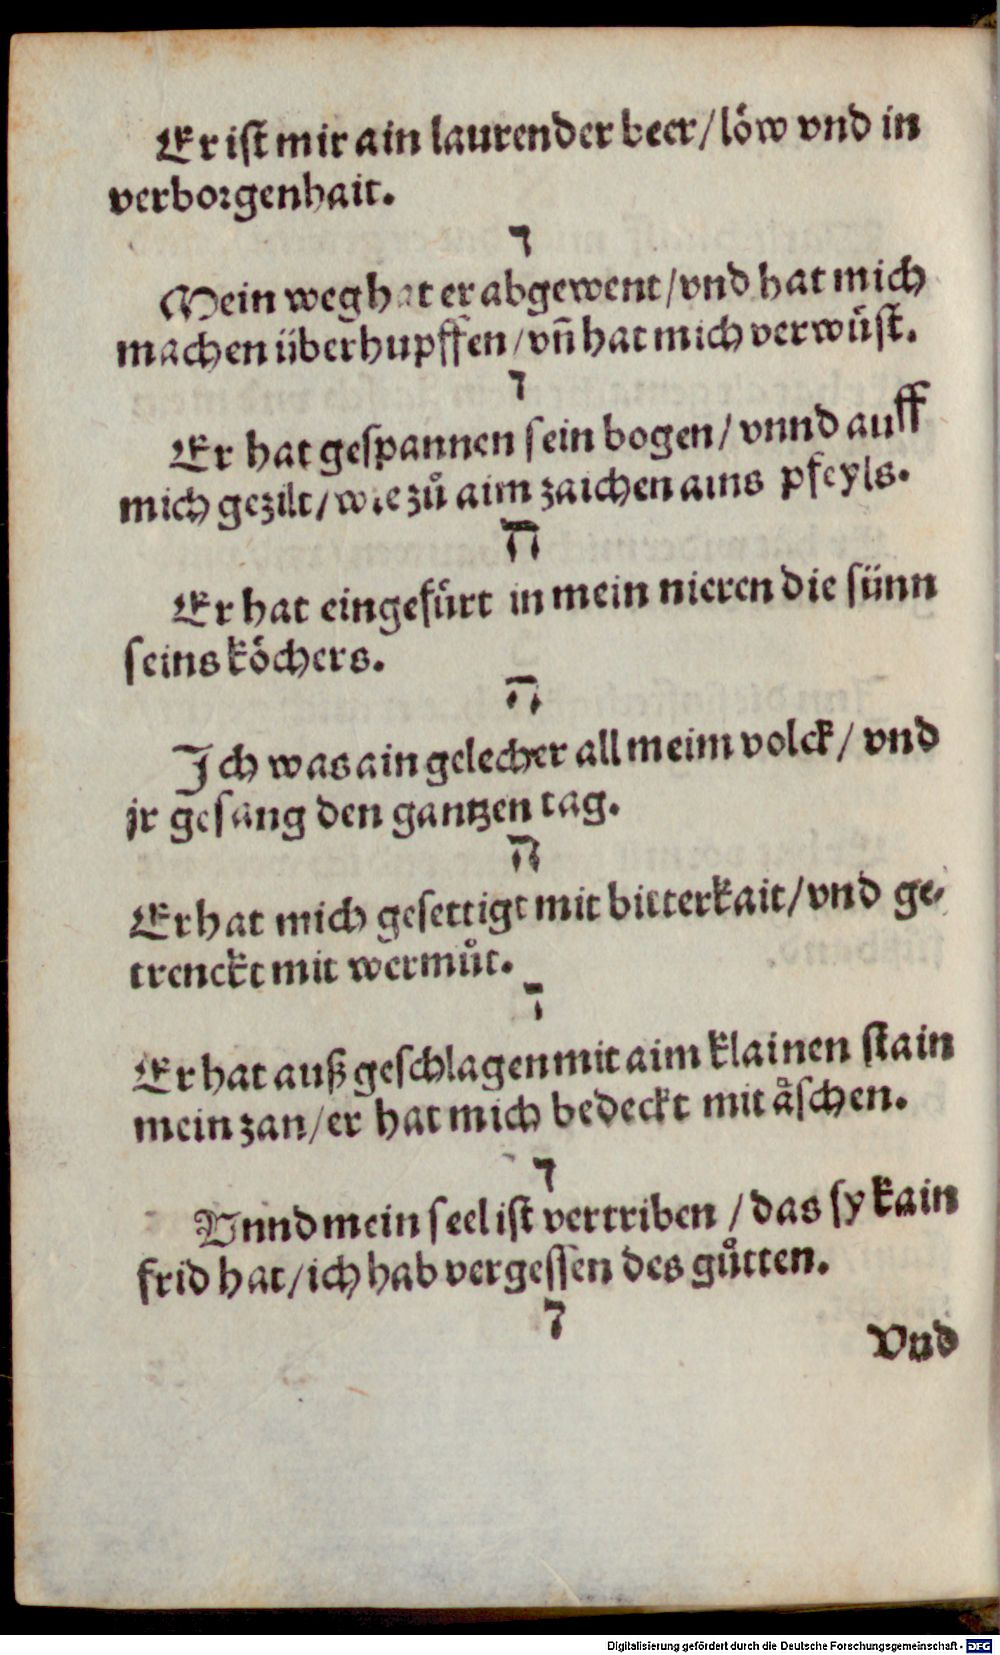 Er ist mir ain laurender beer/löw vnd in
verborgenhait.
ד
Mein weg hat er abgewent/vnd hat mich
machen überhupffen/vñ hat mich verwuͤst.
ד
Er hat gespannen sein bogen/vnnd auff
mich gezilt/wie zů aim zaichen ains pfeyls.
ה
Er hat eingefuͤrt in mein nieren die sünn
seins köchers.
ה
Ich was ain gelecher all meim volck/vnd
jr gesang den gantzen tag.
ה
Er hat mich gesettigt mit bitterkait/vnd ge-
trenckt mit wermůt.
ו
Er hat außgeschlagen mit aim klainen stain
mein zan/er hat mich bedeckt mit aͤschen.
ו
Vnnd mein seel ist vertriben/das sy kain
frid hat/ich hab vergessen des gůtten.
ו
Vnd
Digitalisierung gefördert durch die Deutsche Forschungsgemeinschaft - DFG